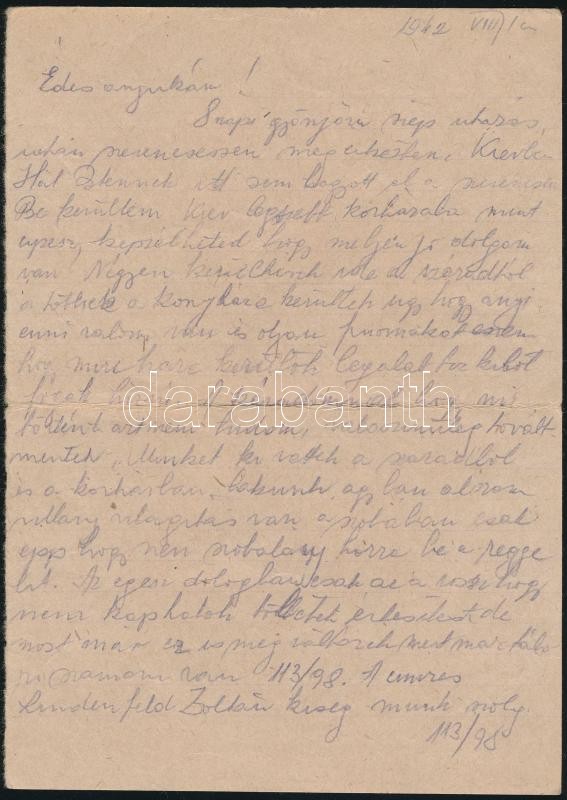 1942 VIII/1 én
Édes anyukám!
8 napi gyönyörű szép utazás
után szerencsésen megérkeztem, Kievbe
Hál Istennek itt sem hagyott el a szerencsém
Be kerültem Kiev legszebb kórházába mint
képzelheted hogy mejen jó dolgom
van. Négyen kerültünk ide a századtól
a többiek a konyhára kerültek ugy hogy annyi
enni valom van és oljan finomakat eszem
hogy mire haza kerülök legalab tiz kilót
fogok hizni. A századunkal hogy mi
történt azt nem tudom, valoszinüleg tovább
mentek. Minket ki vettek a századtól
és a kórházban lakunk, ágyban alszom
villany világitás van a szobában csak
epp hogy nem szobalány hozza be a regge
lit. Az egész dologban csak az a rossz hogy
nem kaphatok tölletek értesitést de
most már ez is meg változik mert már tábo
ri számom van 113/98. A cimzés
Lindenfeld Zoltán kiseg. munk. szolg.
113/98
darabanth